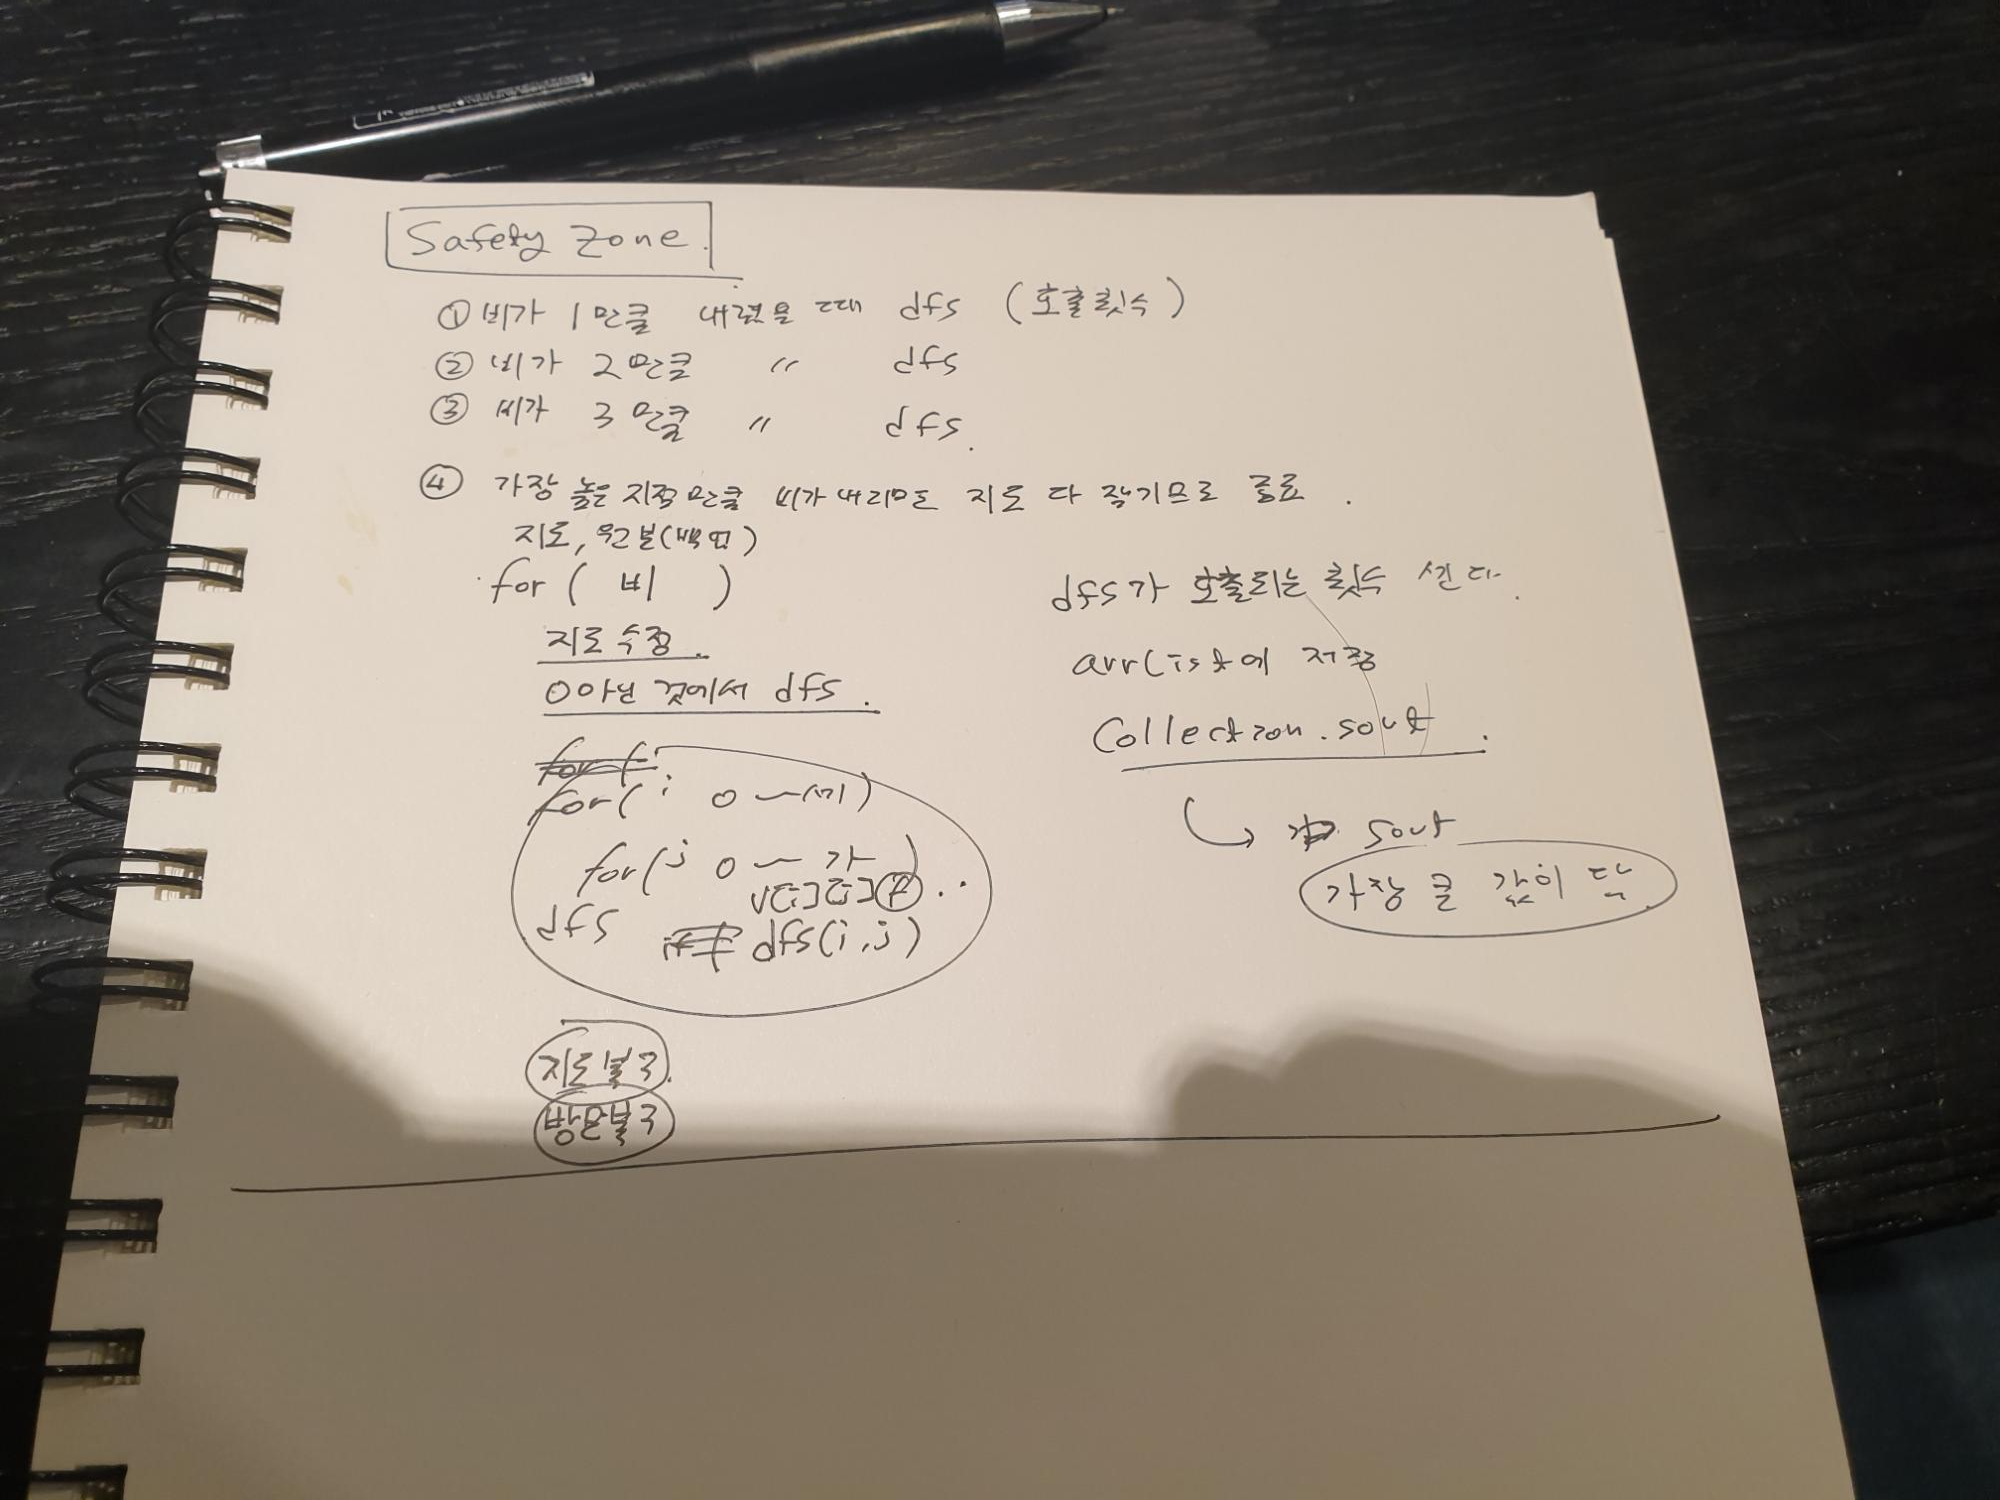 Safety Zone.
① 비가 1 만큼 내렸을 때 dfs (호출횟수)
② 비가 2 만큼 〃 dfs
③ 비가 3 만큼 〃 dfs.
④ 가장 높은 지점 만큼 비가 내리면 지도 다 잠기므로 종료.
지도, 원본(백업)
for ( 비 )
지도 수정.
0 아닌 것에서 dfs.
for(i 0 ~ 세)
for(j 0 ~ 가)
v[i][j]
dfs dfs(i,j)
지도복구.
방문복구
dfs가 호출되는 횟수 센다.
arrlist에 저장
Collection.sort.
sort
가장 큰 값이 답